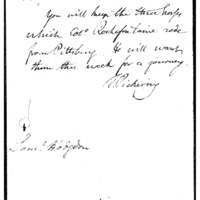 You will keep the three horses
which Colo. Rochefontaine rode
from Pittsburg. He will want
them this week for a journey.
T. Pickering
Saml. Hodgdon